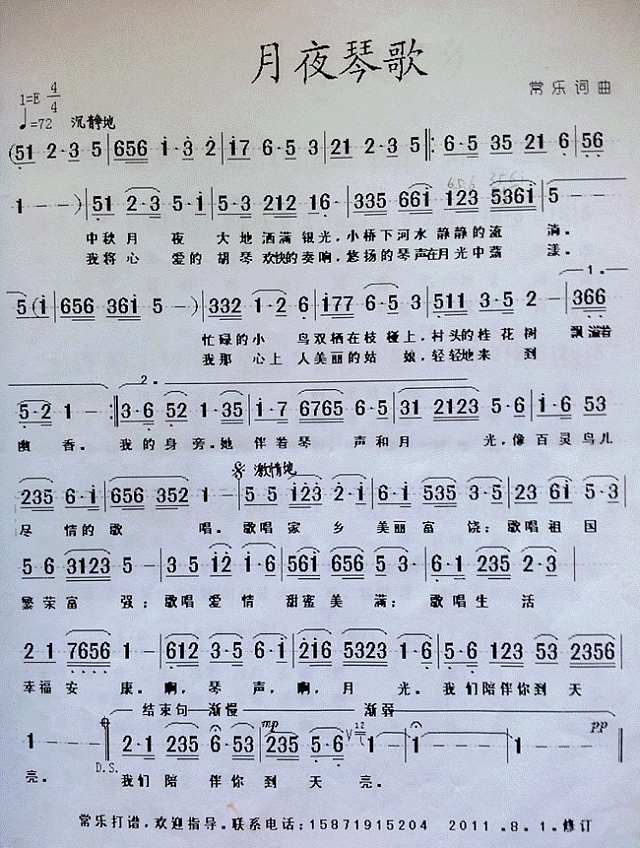 月夜琴歌
常乐词曲
1=E 4/4
♩=72 沉静地
(51 2·3 5 | 656 i·3 2 | i7 6·5 3 | 21 2·3 5 ‖: 6·5 35 21 6 | 56
1 — —) | 51 2·3 5·i | 5·3 212 16· | 335 66i i23 536i | 5 —
中秋月 夜 大地洒满银光,小桥下河水静静的流 淌。
我将心 爱的胡琴欢快的奏响,悠扬的琴声在月光中荡 漾。
5 (i | 656 36i 5) | 332 1·2 2 | i77 6·5 3 | 511 3·5 2 | 366
1.
忙碌的小 鸟双栖在枝碰上,村头的桂花树 飘溢着
我那 心上人美丽的姑 娘,轻轻地来 到
5·2 1 — :‖ 3·6 52 1·35 | i·7 6765 6·5 | 31 2123 5·6 | i·6 53
2.
幽香。 我的身旁。她 伴着琴 声和月 光,像百灵鸟儿
激情地
235 6·i | 656 352 1 — | 5 5 i23 2·i | 6·i 535 3·5 | 23 6i 5·3
尽 情的歌 唱。歌唱家 乡 美丽富 饶;歌唱祖 国
5 6 3123 5 — | 3 5 i2 i·6 | 56i 656 5·3 | 6·1 235 2·3 |
繁荣富 强;歌唱爱 情 甜蜜美 满;歌唱生 活
2 1 7656 1 — | 612 3·5 | 2i6 5323 1·6 | 5·6 123 53 2356
幸福安 康。啊,琴 声,啊,月 光。我们陪伴你到天
结束句 渐慢 渐弱
1 — — | 2·1 235 6·53 | 235 5·6 | 1 — — | 1
mp
pp
亮。 D.S. 我们陪 伴你到天亮。
常乐打谱,欢迎指导。联系电话:15871915204 2011.8.1.修订